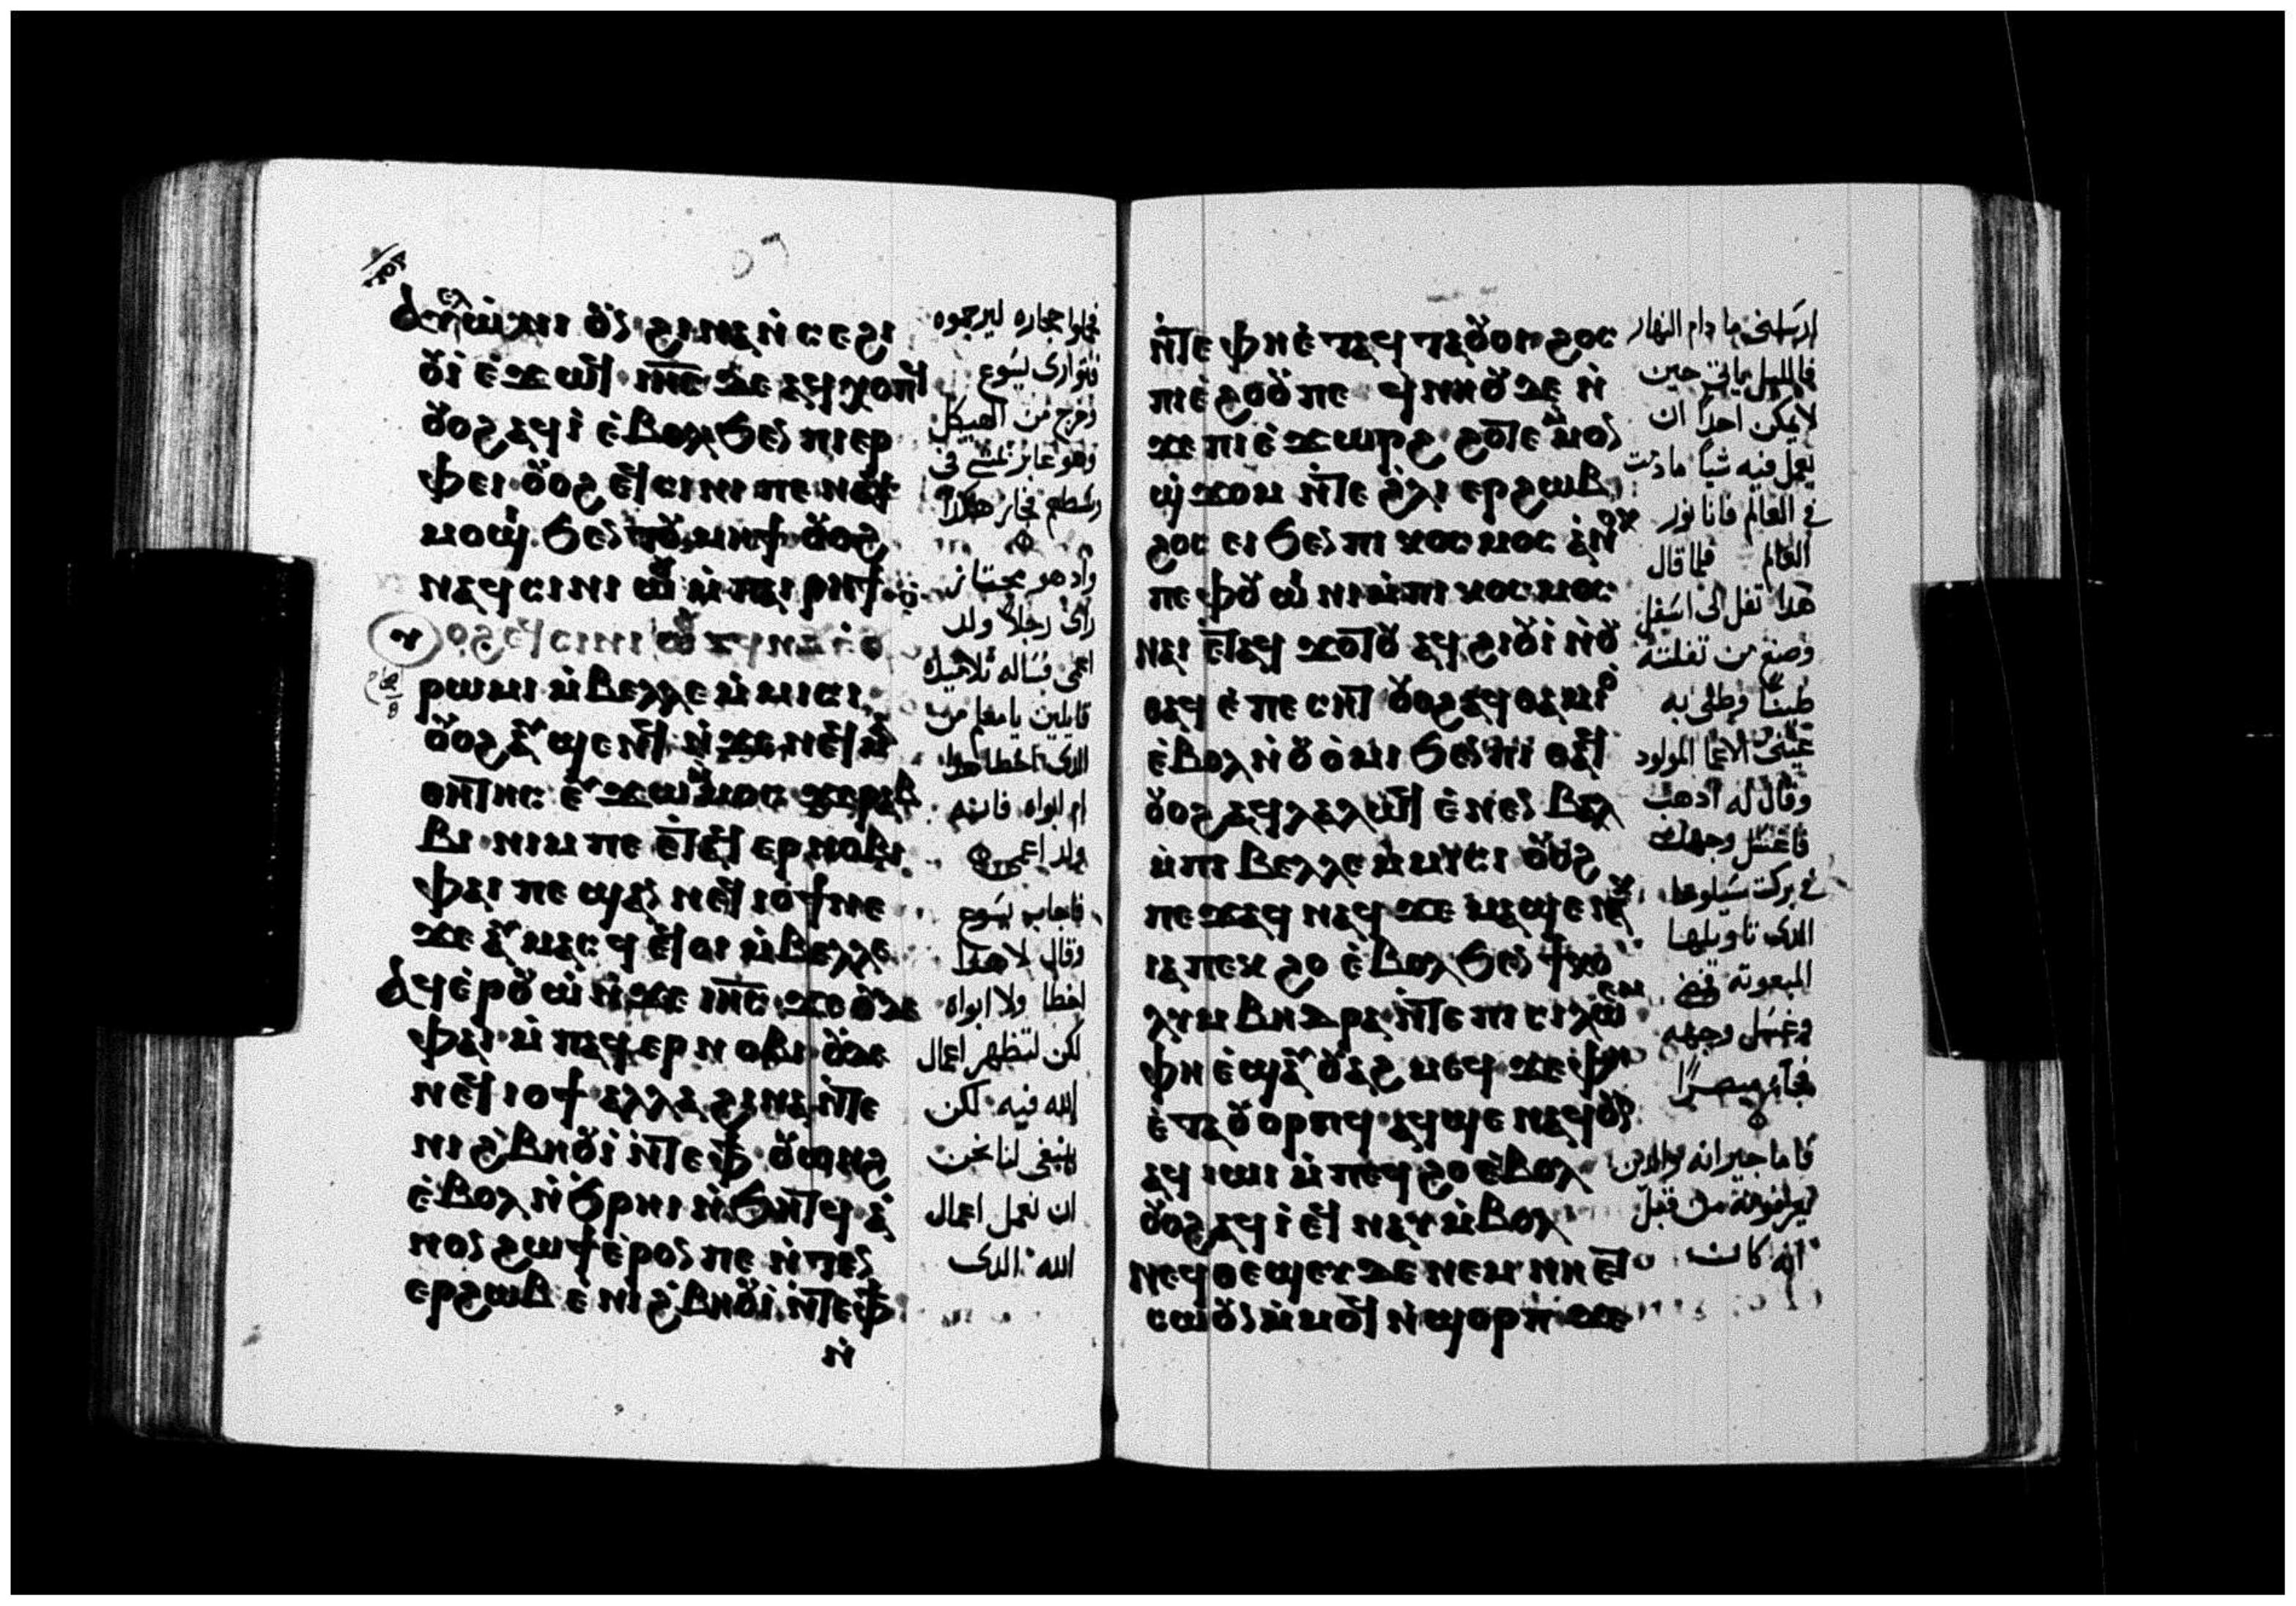 ⲁⲩⲉⲗⲱⲛⲓ ⲟⲩⲛ ϩⲓⲛⲁ ⲛⲥⲉϩⲓ
ⲟⲩⲓ ⲉϫⲱϥ ⲓⲏⲥ ⲇⲉ ⲁϥⲭⲟⲡϥ
ⲟⲩⲟϩ ⲁϥⲓ ⲉⲃⲟⲗϧⲉⲛ ⲡⲓⲉⲣ
ⲫⲉⲓ ⲟⲩⲟϩ ⲉϥⲥⲓⲛⲓ ⲡⲉ ⲛⲁϥ
ⲙⲟϣⲓ ϧⲉⲛ ⲧⲟⲩⲙⲏϯ ⲟⲩⲟϩ
ⲛⲁϥⲥⲓⲛⲓ ⲱⲟⲩ ⲙⲡⲁⲓⲣⲏϯ
ⲟⲩⲟϩ ⲉϥⲥⲓⲛⲓⲱⲟⲩ ⲁϥⲛⲁⲩ ⲉⲟⲩ
ⲣⲱⲙⲓ ⲙⲃⲉⲗⲗⲉ ⲙⲙⲓⲥⲓ
ⲟⲩⲟϩ ⲁⲩϣⲉⲛϥ ⲛϫⲉⲛⲉϥⲙⲁ
ⲑⲏⲧⲏⲥ ⲉⲩϫⲱⲙⲙⲟⲥ ϫⲉⲣⲁⲃ
ⲃⲓ ⲛⲓⲙ ⲡⲉ ⲉⲧⲁϥⲉⲣⲛⲟⲃⲓ
ⲫⲁⲓ ⲡⲉ ϣⲁⲛ ⲛⲉϥⲓⲟϯ ⲛⲉ
ϫⲉ ⲁⲩⲙⲁⲥϥ ⲉϥⲟⲓ ⲙⲃⲉⲗⲗⲉ
ⲁϥⲉⲣⲟⲩⲱ ⲛϫⲉ ⲓⲏⲥ ϫⲉ ⲟⲩⲇⲉ
ⲫⲁⲓ ⲙⲡⲉϥⲉⲣⲛⲟⲃⲓ ⲟⲩⲇⲉ
ⲛⲉϥⲓⲟϯ ⲁⲗⲗⲁ ϩⲓⲛⲁ ⲛⲧⲉ
ⲛⲓϩⲃⲏⲟⲩⲓ ⲛⲧⲉ ⲫϯ ⲟⲩⲱⲛϩ
ⲉⲃⲟⲗ ⲛϧⲣⲏⲓ ⲛϧⲏⲧϥ ⲁ
ⲛⲟⲛ ϩⲱϯ ⲉⲣⲟⲛ ⲡⲉ ⲛⲧⲉⲛ
ⲉⲣϩⲱⲃ ⲉⲛⲓϩⲃⲏⲟⲩⲓ ⲛⲧⲉ ⲫϯ
ⲛ
حجاره ليرجموه
فتوارى يسوع
وخرج من الهيكل
وهو عابر يمشي في
وسطهم فجاز هكذا
واد هو مجتاز
راى رجلا ولد
اعمى فساله تلاميذه
قايلين يا معلم من
الدى اخطا هدا
ام ابواه فانه
ولد اعمى
فاجاب يسوع
وقال لا هدا
اخطا ولا ابواه
لكن لتظهر اعمال
الله فيه لكن
ينبغى لنا نحن
ان نعمل اعمال
الله الدى
ⲛⲧⲉ ⲫⲏ ⲉⲧⲁϥⲧⲁⲟⲩⲟⲓ ϩⲟⲥ
ⲡⲓⲉϩⲟⲟⲩ ⲡⲉ ϥⲛⲏⲟⲩ ⲇⲉ ⲛ
ϫⲉ ⲡⲓⲉϫⲱⲣϩ ϩⲟⲧⲉ ⲙⲙⲟⲛ
ϣϫⲟⲙ ⲛⲧⲉ ϩⲗⲓ ⲉⲣϩⲱⲃ
ϩⲟⲥ ⲉⲓ ϧⲉⲛ ⲡⲓⲕⲟⲥⲙⲟⲥ ⲁⲛⲟⲕ
ⲡⲉ ⲫⲟⲩⲱⲓⲛⲓ ⲙⲡⲓⲕⲟⲥⲙⲟⲥ
ⲛⲁⲓ ⲉⲧⲁϥϫⲟⲧⲟⲩ ⲁϥϩⲓⲟⲩⲓ ⲛⲟⲩ
ⲑⲁϥ ⲉⲡⲉⲥⲏⲧ ⲟⲩⲟϩ ⲁϥⲑⲁⲙⲓⲟ
ⲉⲃⲟⲗ ⲛⲟⲩⲟⲙⲓ ϧⲉⲛ ⲡⲓⲑⲁϥ
ⲟⲩⲟϩ ⲁϥⲗⲁⲗⲱϥ ⲉⲛⲉⲛⲃⲁⲗ
ⲙⲡⲓⲃⲉⲗⲗⲉ ⲙⲙⲓⲥⲓ ⲟⲩⲟϩ
ⲡⲉϫⲁϥ ⲛⲁϥ ϫⲉ ⲙⲁϣⲉ ⲛⲁⲕ
ⲓⲁ ⲡⲉⲕϩⲟ ⲉⲃⲟⲗ ϧⲉⲛ ϯⲕⲟ
ⲗⲩⲙⲃⲏⲑⲣⲁ ⲛⲧⲉ ⲡⲓⲥⲓⲗⲱⲁⲙ
ⲫⲏ ⲉϣⲁⲩⲟⲩⲁϩⲙⲉϥ ϫⲉ ⲫⲏ
ⲉⲧⲁⲩⲟⲩⲟⲣⲡϥ ⲁϥϣⲉ ⲛⲁϥ ⲟⲩⲛ
ⲁϥⲓⲱⲓ ⲙⲡⲉϥϩⲟ ⲉⲃⲟⲗ
ⲟⲩⲟϩ ⲁϥⲓ ⲉϥⲛⲁⲩ ⲙⲃⲟⲗ
ⲛⲉϥⲑⲉϣⲉⲩ ⲇⲉ ⲛⲉⲙ ⲛⲏ ⲉⲧ
ⲥⲱⲟⲩⲛ ⲙⲙⲟϥ ⲛϣⲟⲣⲡ ϫⲉ
ارسلنى ما دام النهار
فالليل ياتى حين
لا يمكن احدا ان
يعمل فيه شيا ما دمت
فى العالم فانا نور
العالم فلما قال
هدا تفل الى اسفل
وصنع من تفلته
طينا وطلى به
عينى الاعما المولود
وقال له ادهب
فاغتسل وجهك
فى بركت سيلوحا
الدى تاويلها
المبعوته فمضى
وغسل وجهه
فجآء مبصرا
فاما جيرانه والدين
يعرفونه من قبل
انه كان